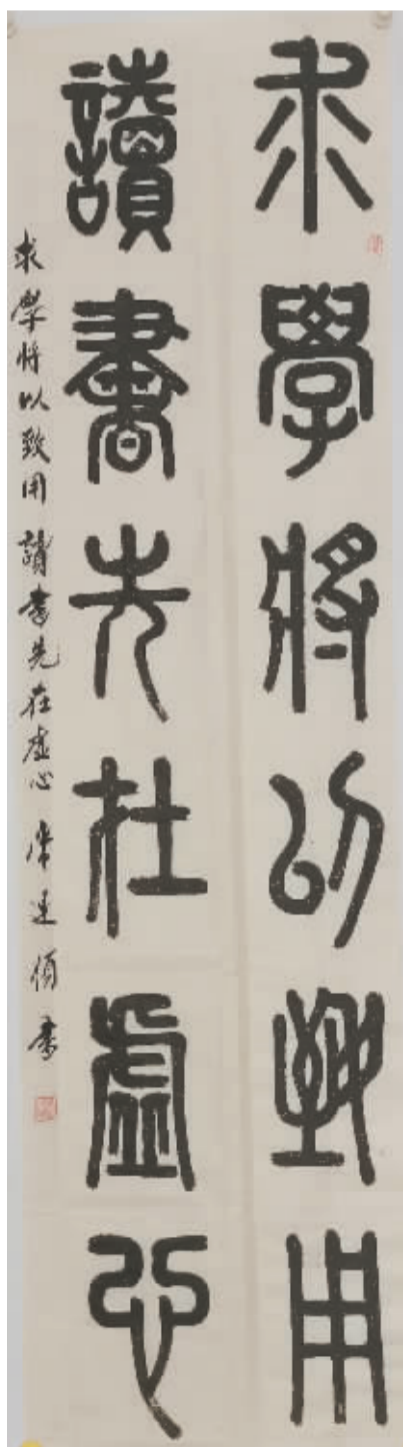 求學將以致用
讀書先在虛心
求學將以致用 讀書先在虛心